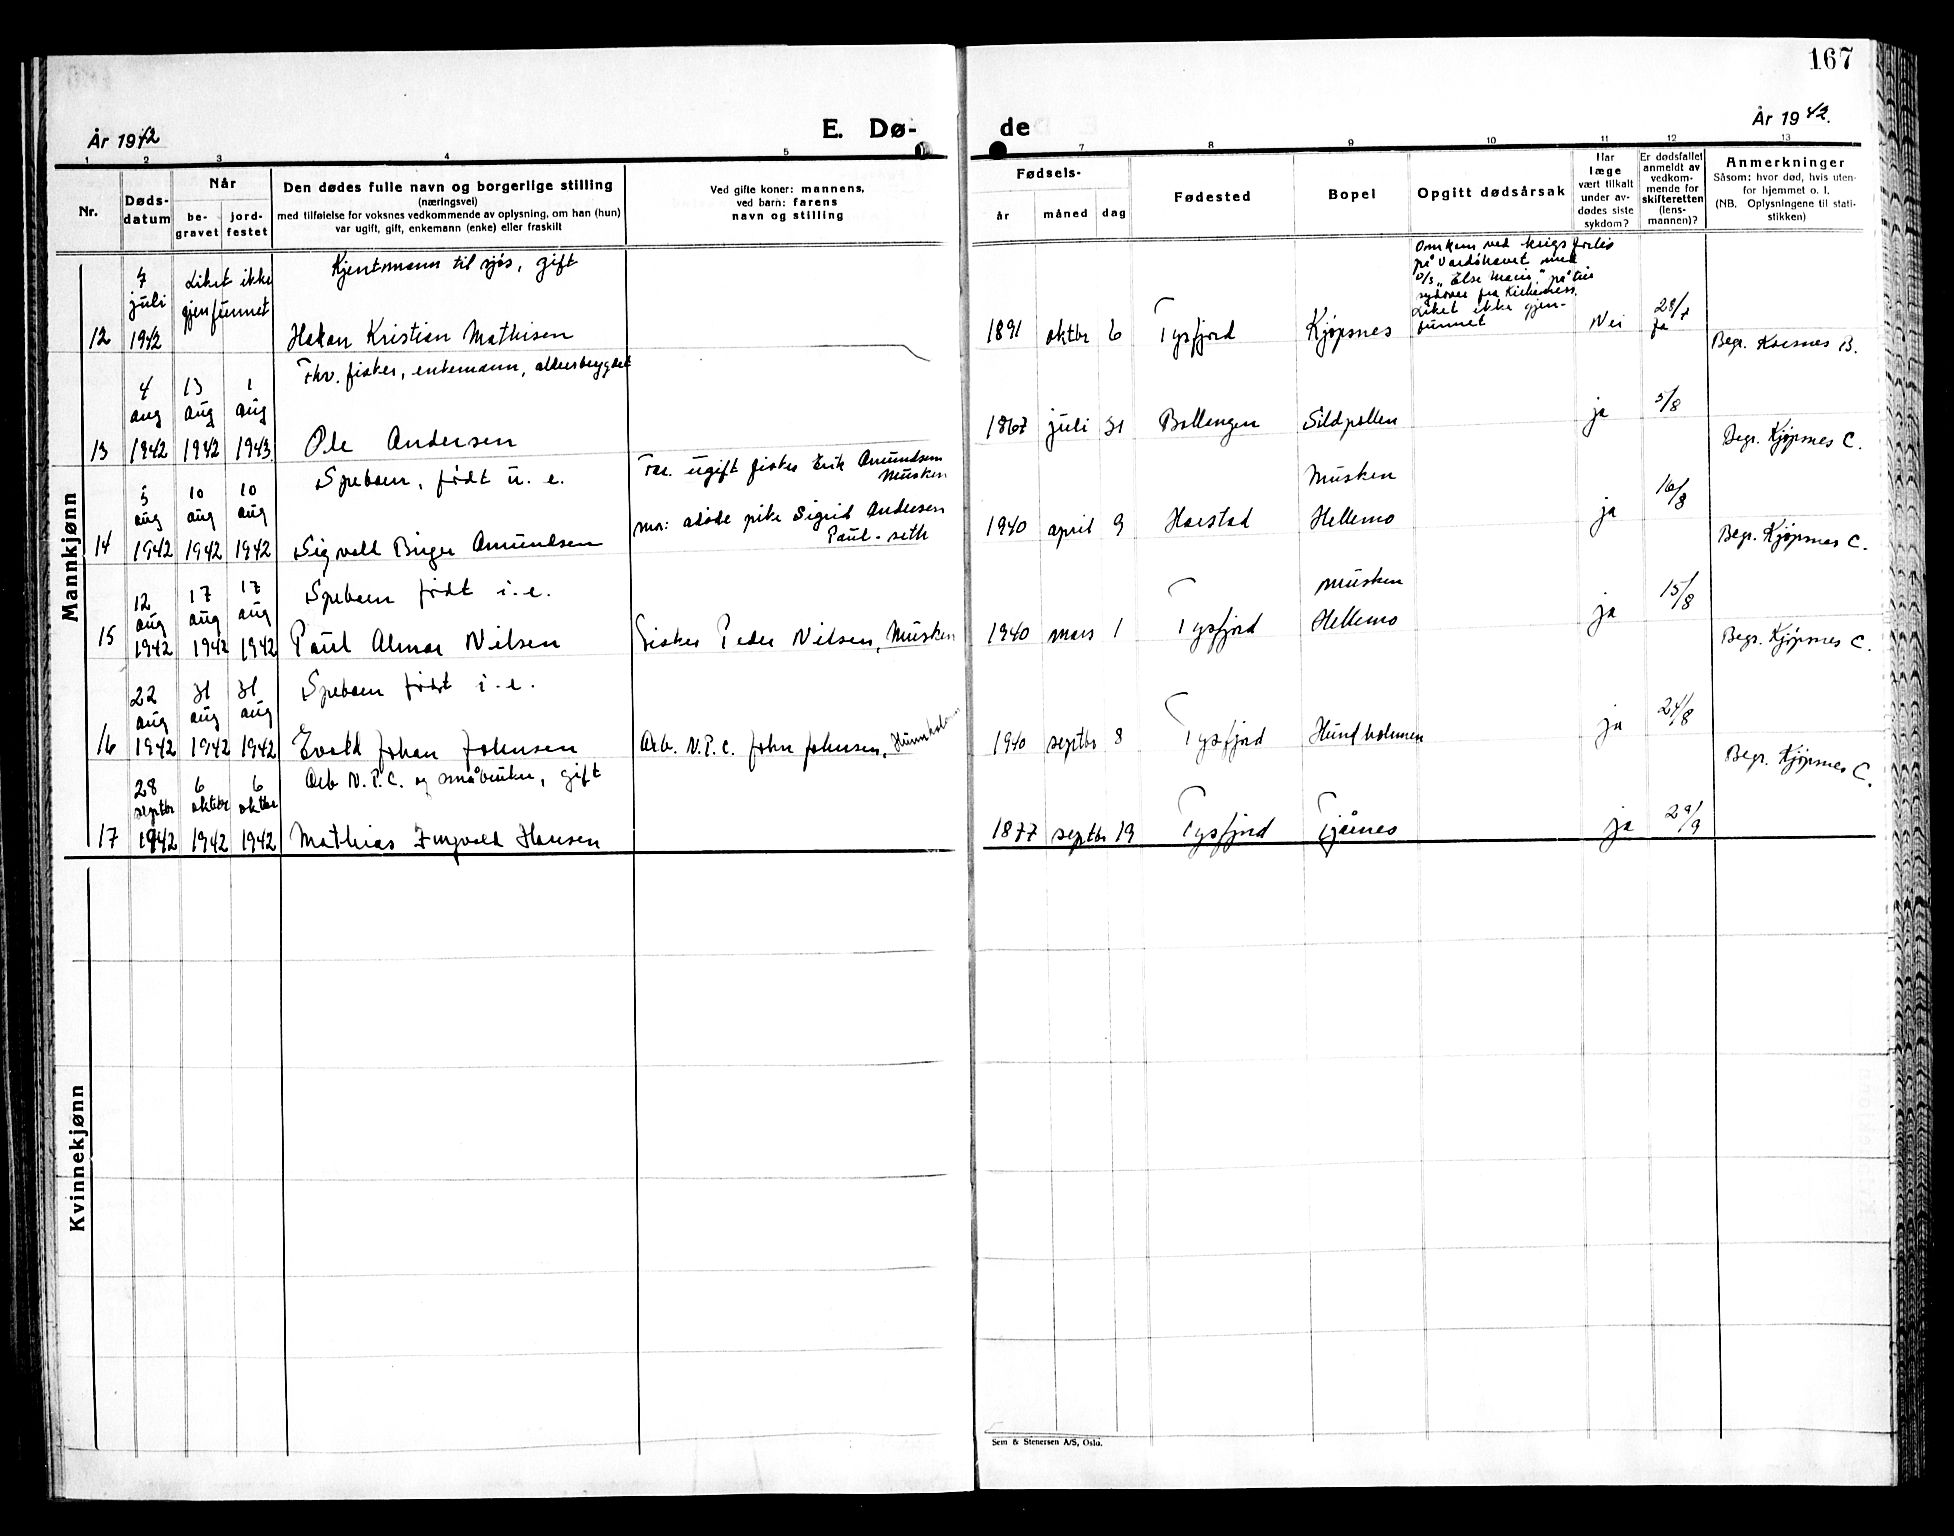 167
År 1942
E. Dø-
de
År 1942.
1 2 3 4 5
7 8 9 10 11 12 13
Nr.
Døds-
datum
Når
be-
gravet
jord-
festet
Den dødes fulle navn og borgerlige stilling
(næringsvei)
med tilføielse for voksnes vedkommende av oplysning, om han (hun)
var ugift, gift, enkemann (enke) eller fraskilt
Ved gifte koner: mannens,
ved barn: farens
navn og stilling
Fødsels-
år
måned
dag
Fødested
Bopel
Opgitt dødsårsak
Har
læge
vært tilkalt
under av-
dødes siste
sykdom?
Er dødsfallet
anmeldt av
vedkom-
mende for
skifteretten
(lens-
mannen)?
Anmerkninger
Såsom: hvor død, hvis uten-
for hjemmet o. l.
(NB. Oplysningene til stati-
stikken)
Mannkjønn
12
7
juli
1942
Liket ikke
gjenfunnet
Kjentmann til sjøs, gift
Hakon Kristian Mathisen
1891 oktbr 6 Tysfjord Kjøpsnes
Omkom ved krigsforlis
på Vardøhavet med
D/S "Else Marie" på tur
sydover fra Kirkenes.
Liket ikke gjen-
funnet
Nei
28/7
ja
13
4
aug
1942
13
aug
1942
1
aug
1943
Fhv. fisker, enkemann, alderstrygdet
Ole Andersen
1867 juli 31 Ballangen Sildpollen
ja
5/8
Begr. Korsnes B.
14
5
aug
1942
10
aug
1942
10
aug
1942
Spebarn, født u. e.
Sigvald Birger Amundsen
Far. ugift fisker Erik Amundsen
Musken
mor: avdøde pike Sigrid Andersen
Paul-seth
1940 april 9 Harstad
Musken
Hellemo
ja
16/8
Begr. Kjøpsnes C.
15
12
aug
1942
17
aug
1942
17
aug
1942
Spebarn født i. e.
Paul Almar Nilsen
Fisker Peder Nilsen, Musken
1940 mars 1 Tysfjord
Musken
Hellemo
ja
15/8
Begr. Kjøpsnes C.
16
22
aug
1942
31
aug
1942
31
aug
1942
Spebarn født i. e.
Evald Johan Johnsen
Arb. N.P.C. John Johnsen, Hundholmen
1940 septbr 8 Tysfjord Hundholmen
ja
24/8
Begr. Kjøpsnes C.
17
28
septbr
1942
6
oktbr
1942
6
oktbr
1942
Arb N.P.C. og småbruker, gift
Mathias Ingvald Hansen
1877 septbr 19 Tysfjord Tjårnes
ja
29/9
Begr. Kjøpsnes C.
Kvinnekjønn
Sem & Stenersen A/S, Oslo.